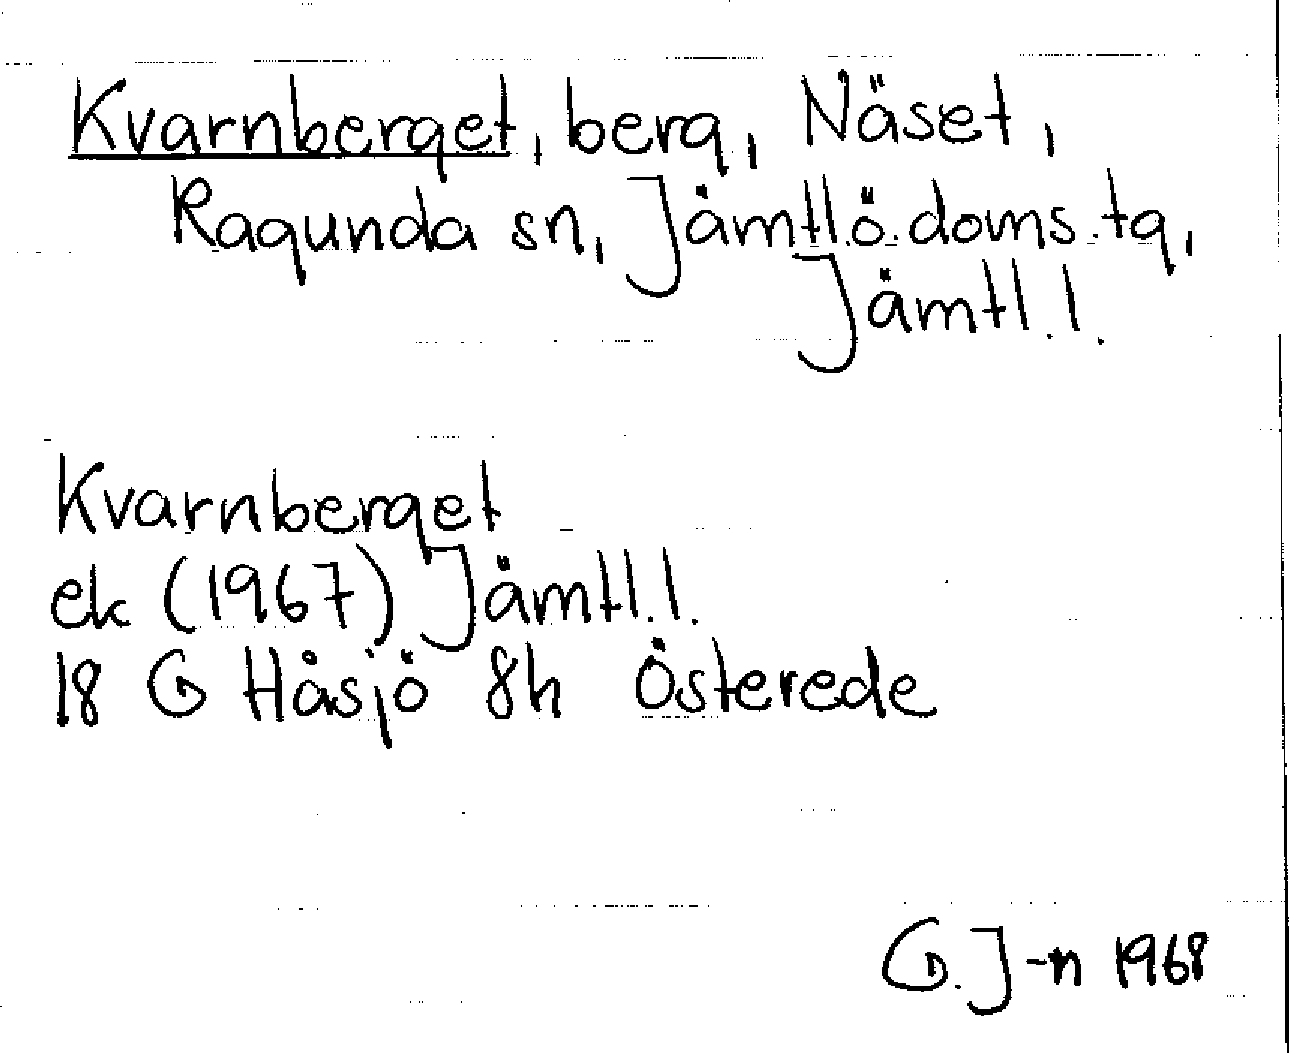 Kvarnberget, berg, Näset,
Ragunda sn, Jämtl.ö.doms.tg,
Jämtl.l.
Kvarnberget
ek (1967) Jämtl.l.
18 G Håsjö 8h Österede
G.J-n 1968